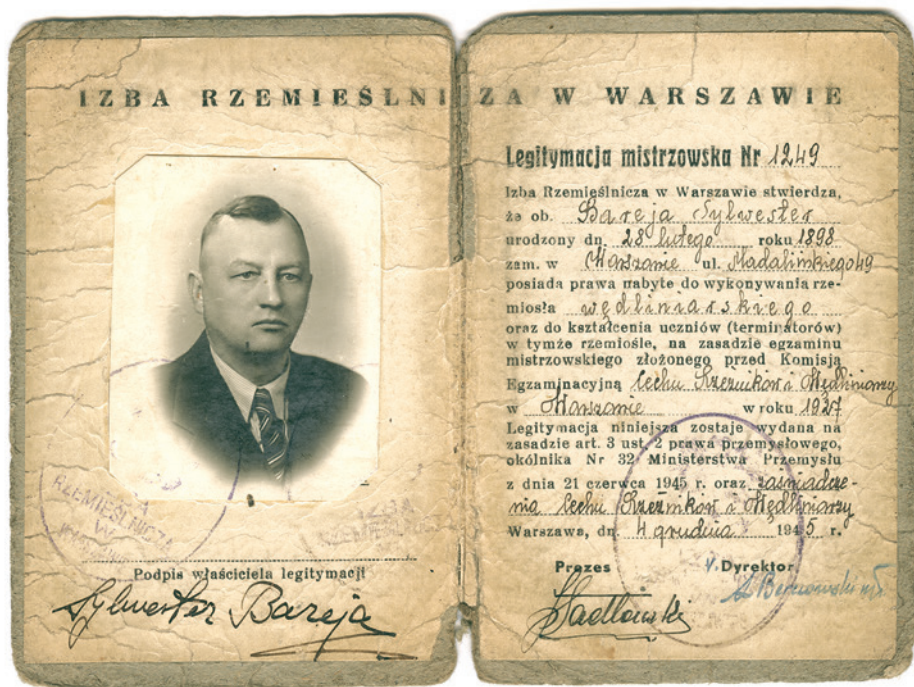 IZBA RZEMIEŚLNICZA W WARSZAWIE
RZEMIEŚLNICZA
Podpis właściciela legitymacji
Sylwester Bareja
Legitymacja mistrzowska Nr 1249
Izba Rzemieślnicza w Warszawie stwierdza,
że ob. Bareja Sylwester
urodzony dn. 28 lutego roku 1898
zam. w Warszawie ul. Madalińskiego 49
posiada prawa nabyte do wykonywania rze-
miosła wędliniarskiego
oraz do kształcenia uczniów (terminatorów)
w tymże rzemiośle, na zasadzie egzaminu
mistrzowskiego złożonego przed Komisją
Egzaminacyjną Cechu Rzeźników i Wędliniarzy
w Warszawie w roku 1927
Legitymacja niniejsza zostaje wydana na
zasadzie art. 3 ust. 2 prawa przemysłowego,
okólnika Nr 32 Ministerstwa Przemysłu
z dnia 21 czerwca 1945 r. oraz zaświadcze-
nia Cechu Rzeźników i Wędliniarzy
Warszawa, dn. 4 grudnia 1945 r.
Prezes
Dyrektor